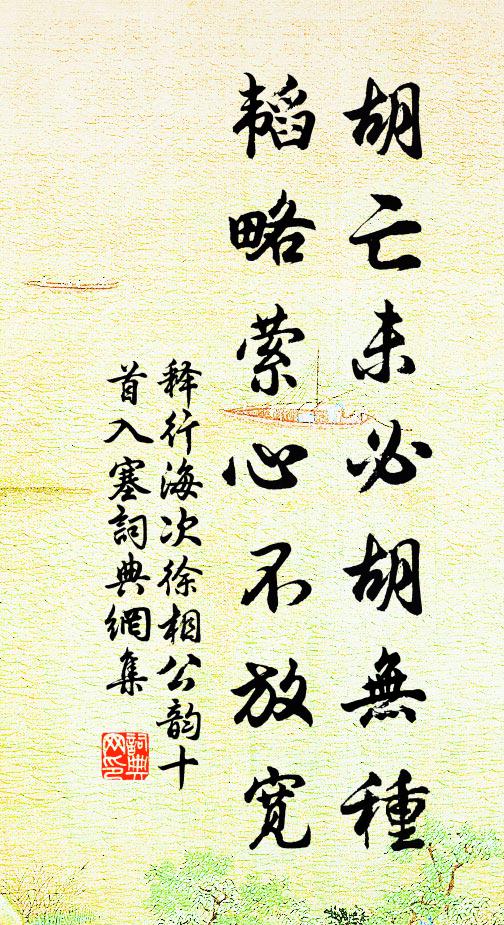 胡亡未必胡無種
韜略萦心不放寬
释行海次徐相公韵十
首入塞詞典網集
詞典
网印